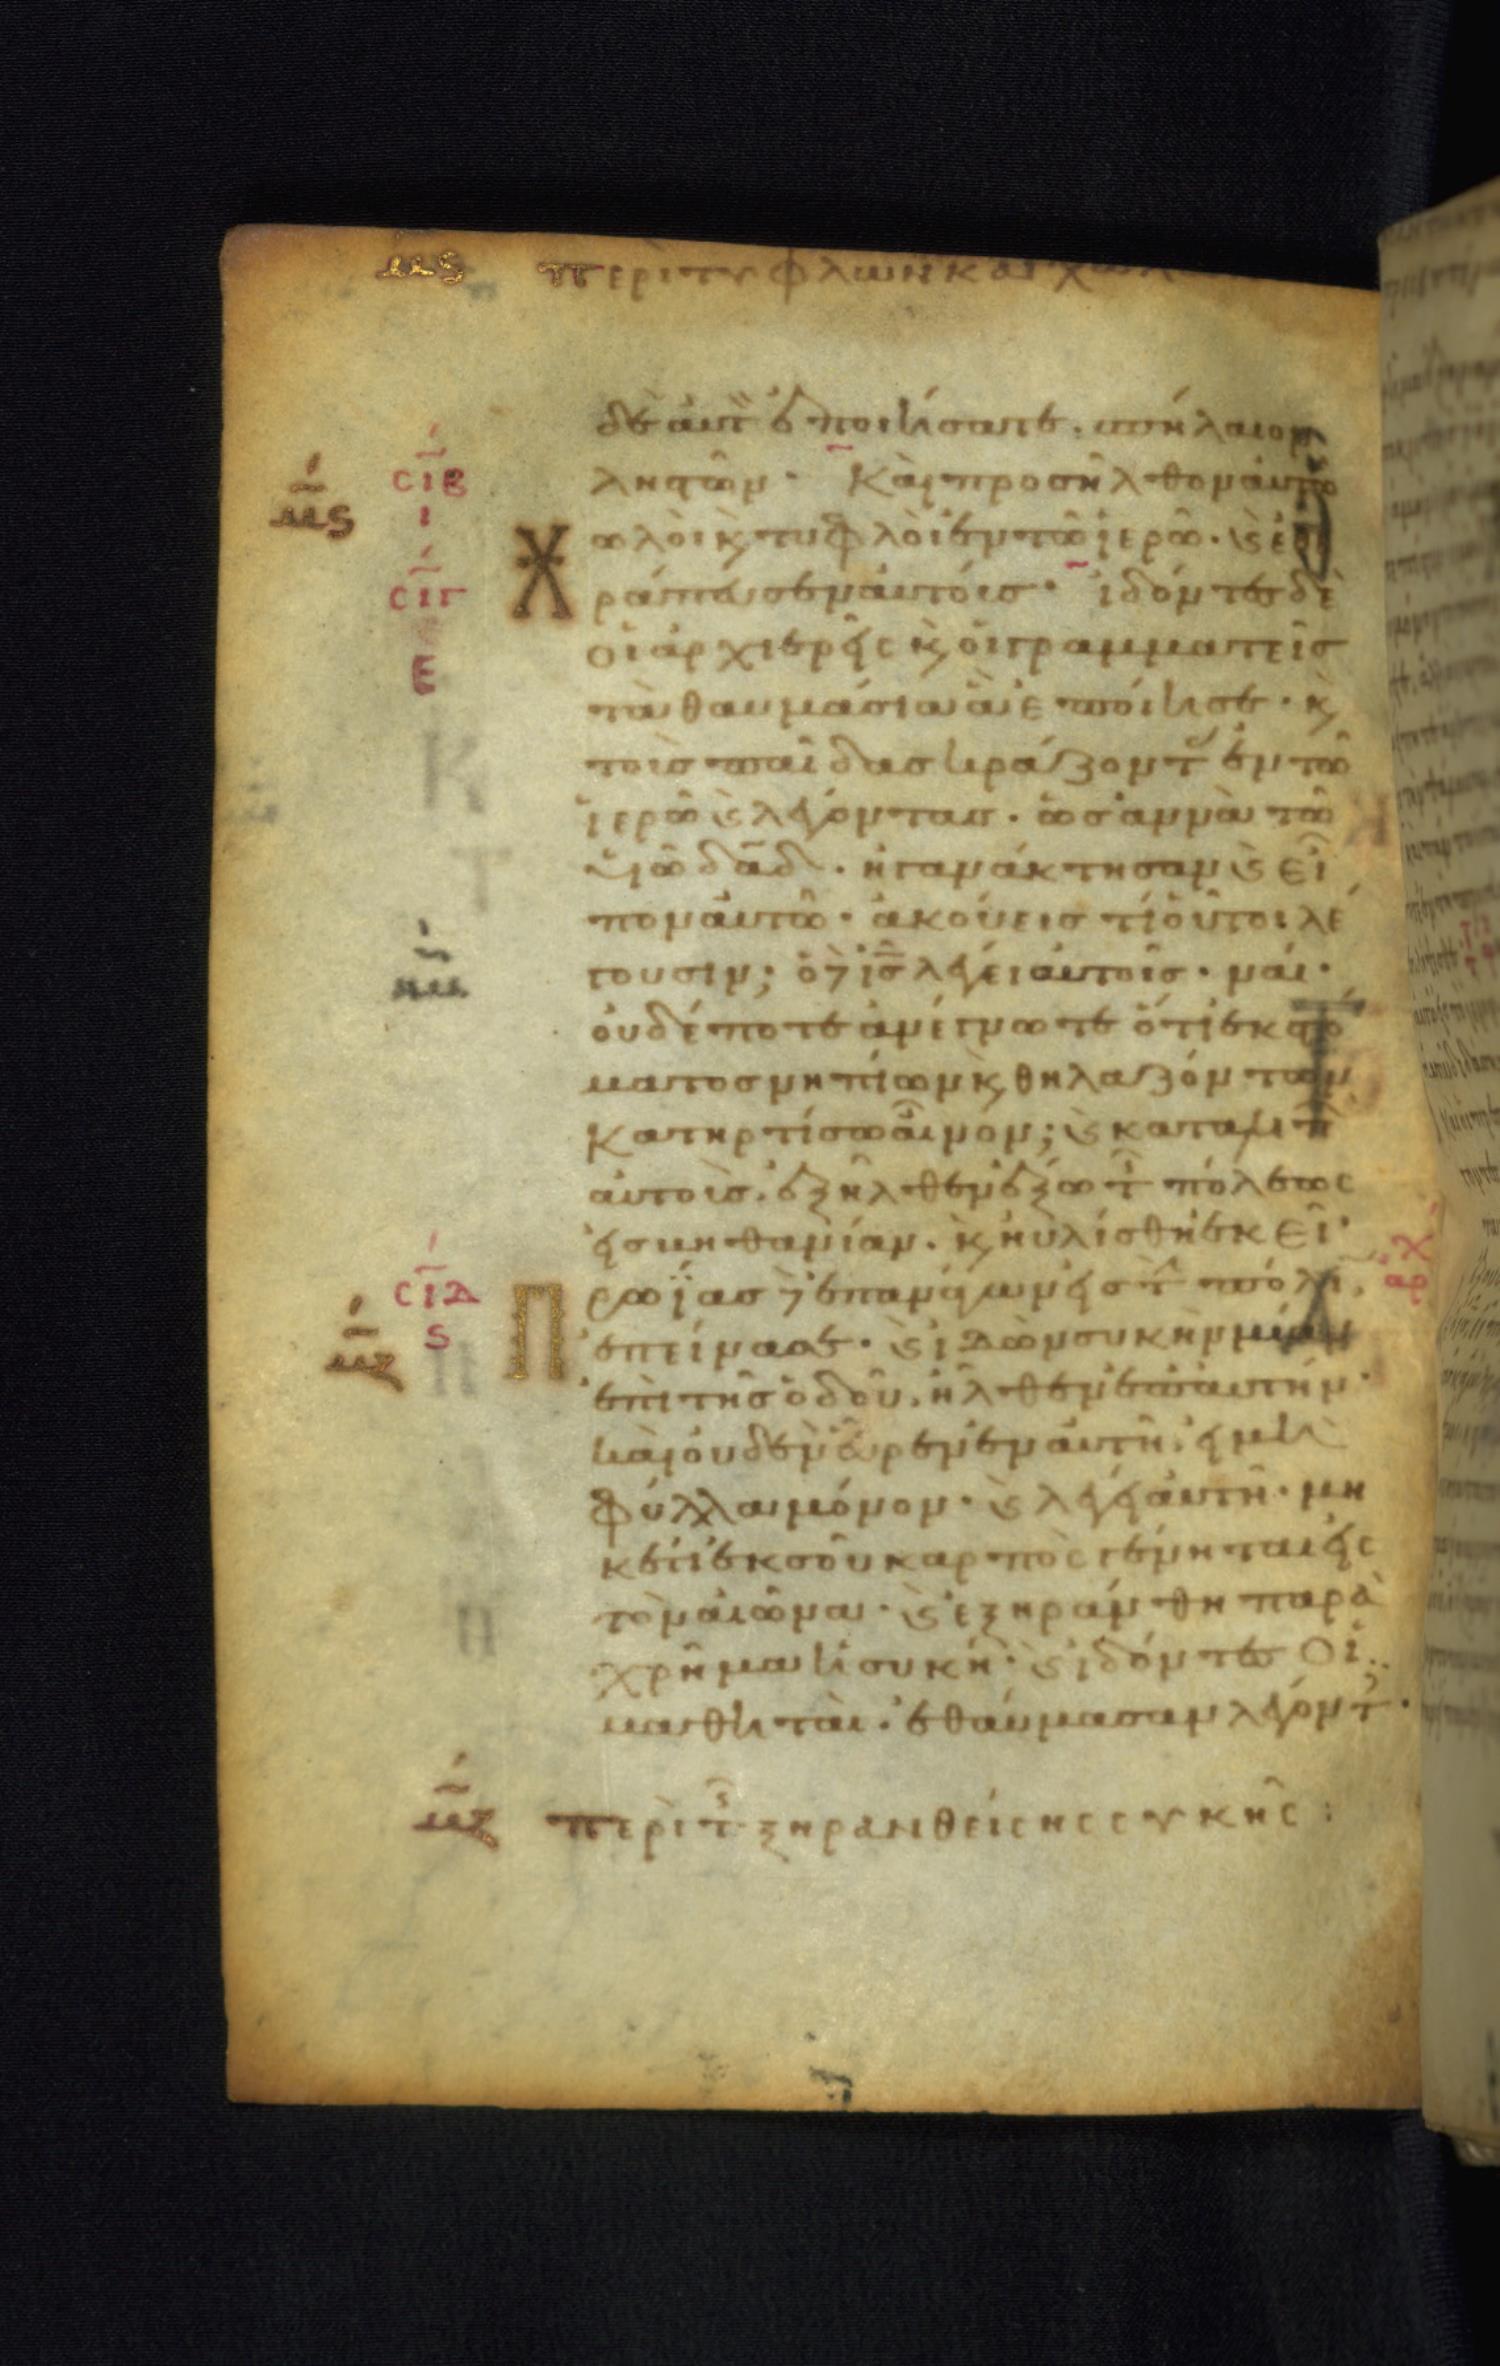 μϛ περι τυφλων και χωλ
δὲ αὐτ ἐποιήσατε. σπήλαιον
ληστῶν· Καὶ προσῆλθον αὐτῶ
σιβ
ι
μϛ
Χ ωλοὶ κ τυφλοὶ ἐν τῶ ἱερῶ· κ ἐθε
σιγ
ράπευσεν αὐτούς· ἰδόντες δὲ
οἱ ἀρχιερεῖς κ οἱ γραμματεῖς
ε
τὰ θαυμάσια ἃ ἐποίησε· κ
τοὺς παῖδας κράζοντ ἐν τῶ
ἱερῶ κ λέγοντας· ὡσαννὰ τῶ
υἱῶ δαδ· ἠγανάκτησαν κ εἶ
πον αὐτῶ· ἀκούεις τί οὗτοι λέ
γουσιν; ὁ δὲ ις λέγει αὐτοῖς· ναί·
μη
οὐδέποτε ἀνέγνωτε ὅτι ἐκ στό
ματος νηπίων κ θηλαζόντων
κατηρτίσω αἶνον; κ καταλιπ
αὐτοὺς. ἐξῆλθεν ἔξω τ πόλεως
εἰς βηθανίαν. κ ηὐλίσθη ἐκεῖ·
σιδ
ϛ
μζ
Π ρωΐας δὲ ἐπανάγων εἰς τ πόλι,
αρχ
ἐπείνασε· κ ἰδὼν συκὴν μίαν
ἐπὶ τῆς ὁδοῦ. ἦλθεν ἐπ αὐτήν·
καὶ οὐδὲν εὗρεν ἐν αὐτῆ. εἰ μὴ
φύλλα μόνον· κ λέγει αὐτῆ· μη
κέτι ἐκ σοῦ καρπὸς γένηται εἰς
τὸν αἰῶνα· κ ἐξηράνθη παρα
χρῆμα ἡ συκή· κ ἰδόντες οἱ
μαθηταὶ. ἐθαύμασαν λέγοντ·
μζ περὶ τ ξηρανθείσης συκῆς :